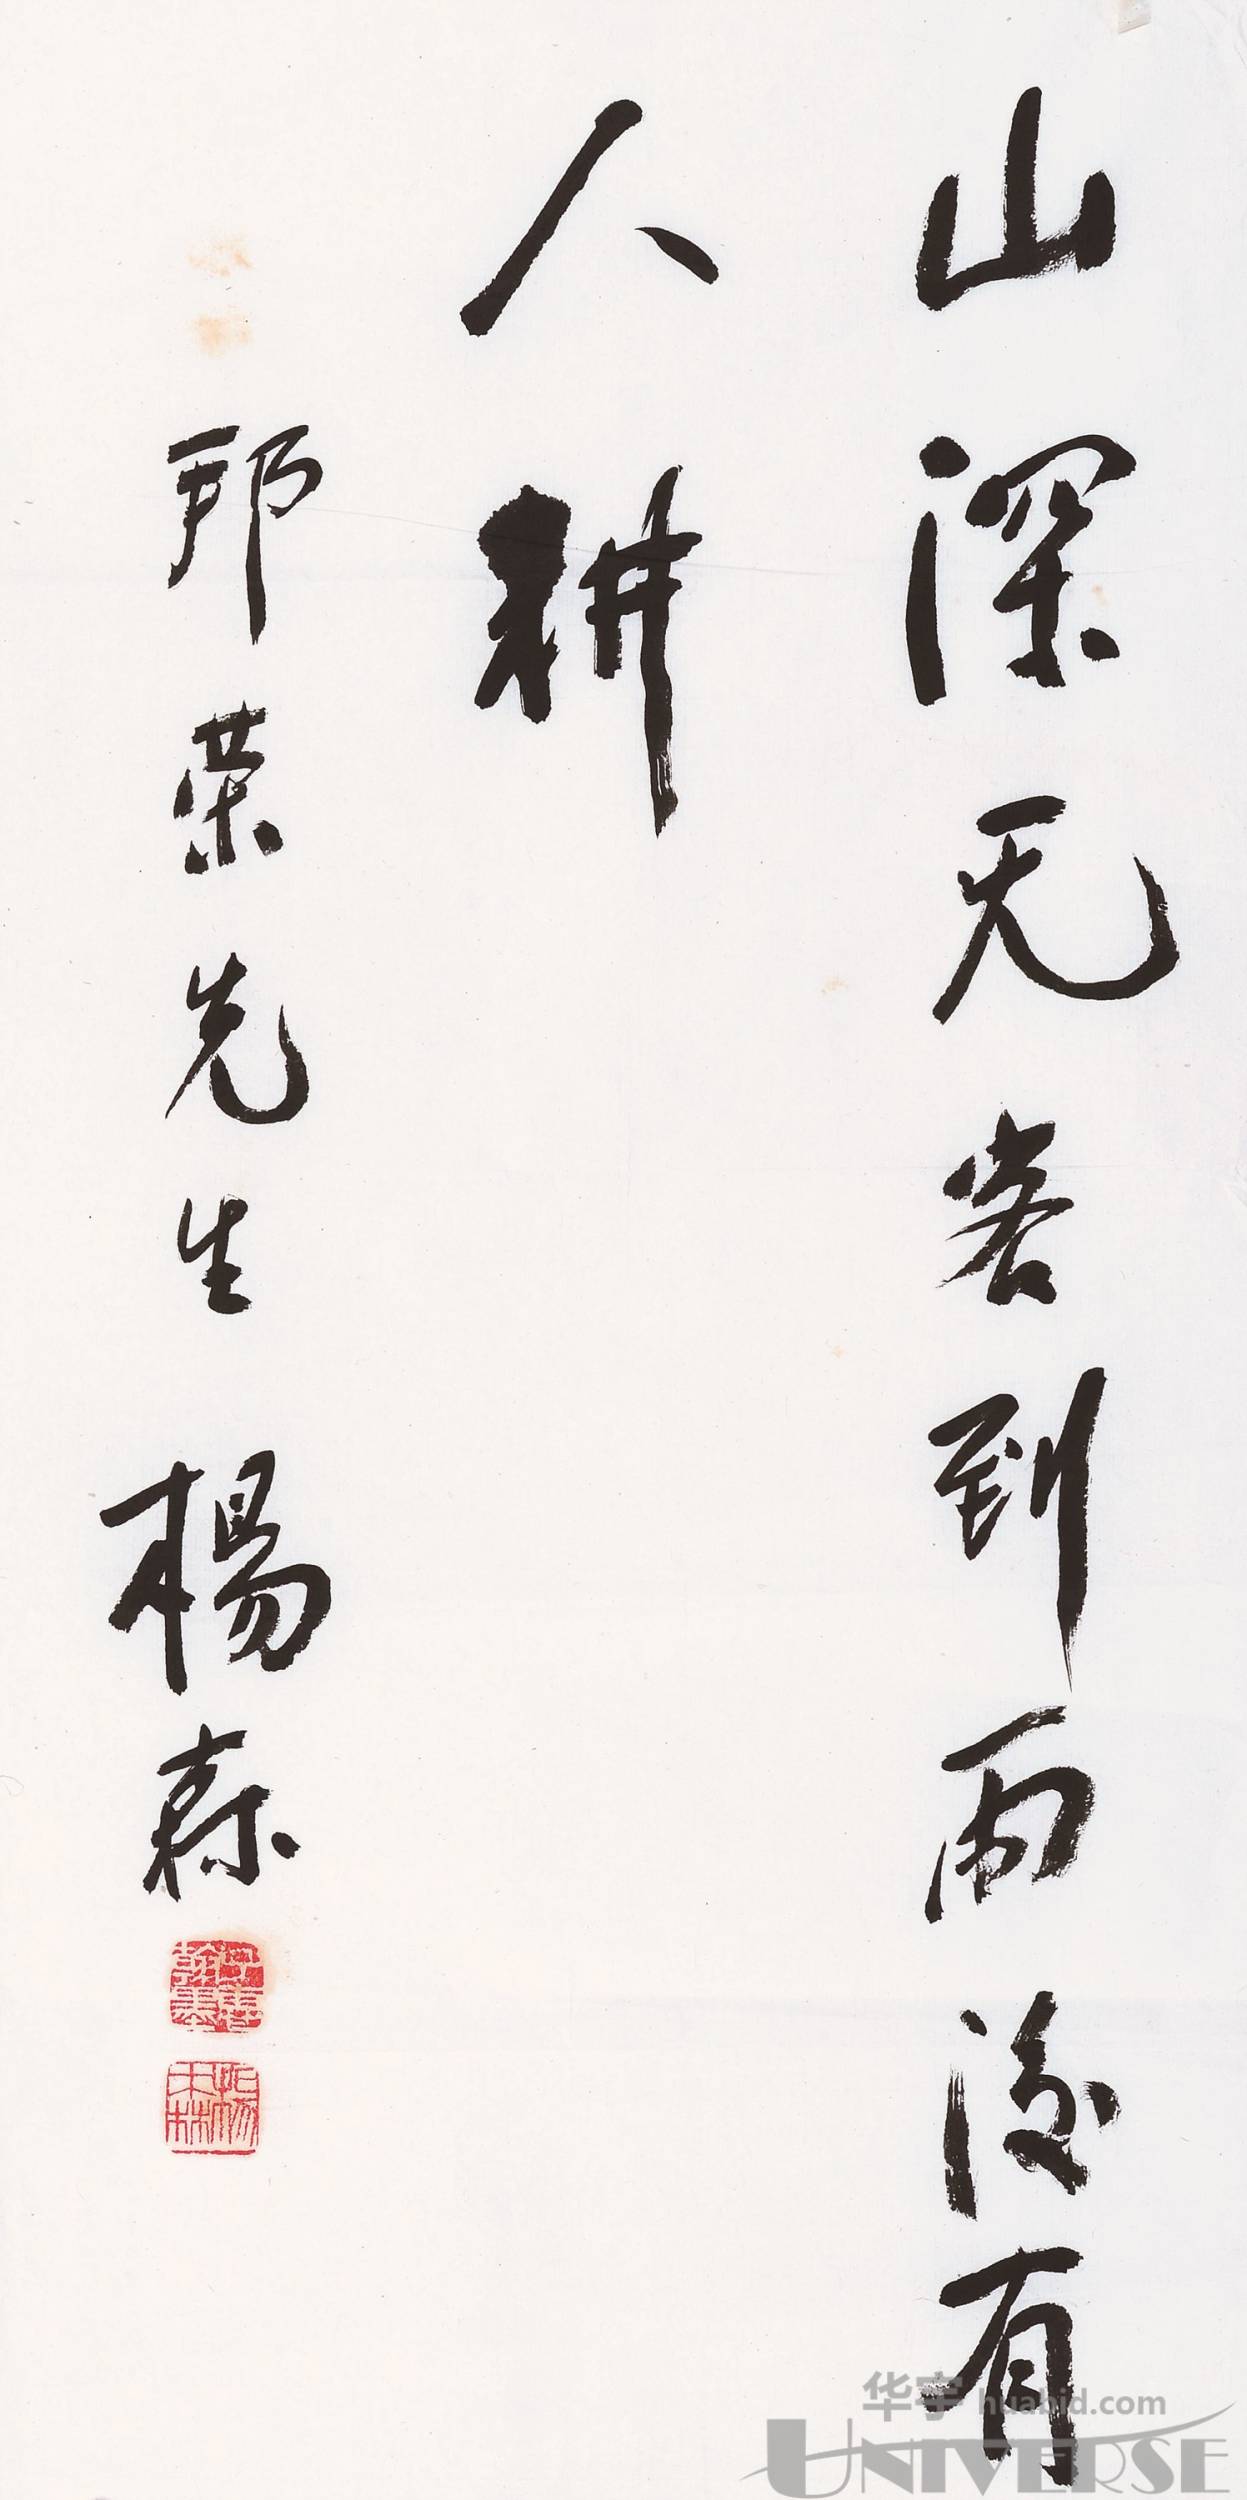 山深无客到雨後有
人耕
邦荣先生 楊森
楊森
华宇 huabid.com
UNIVERSE